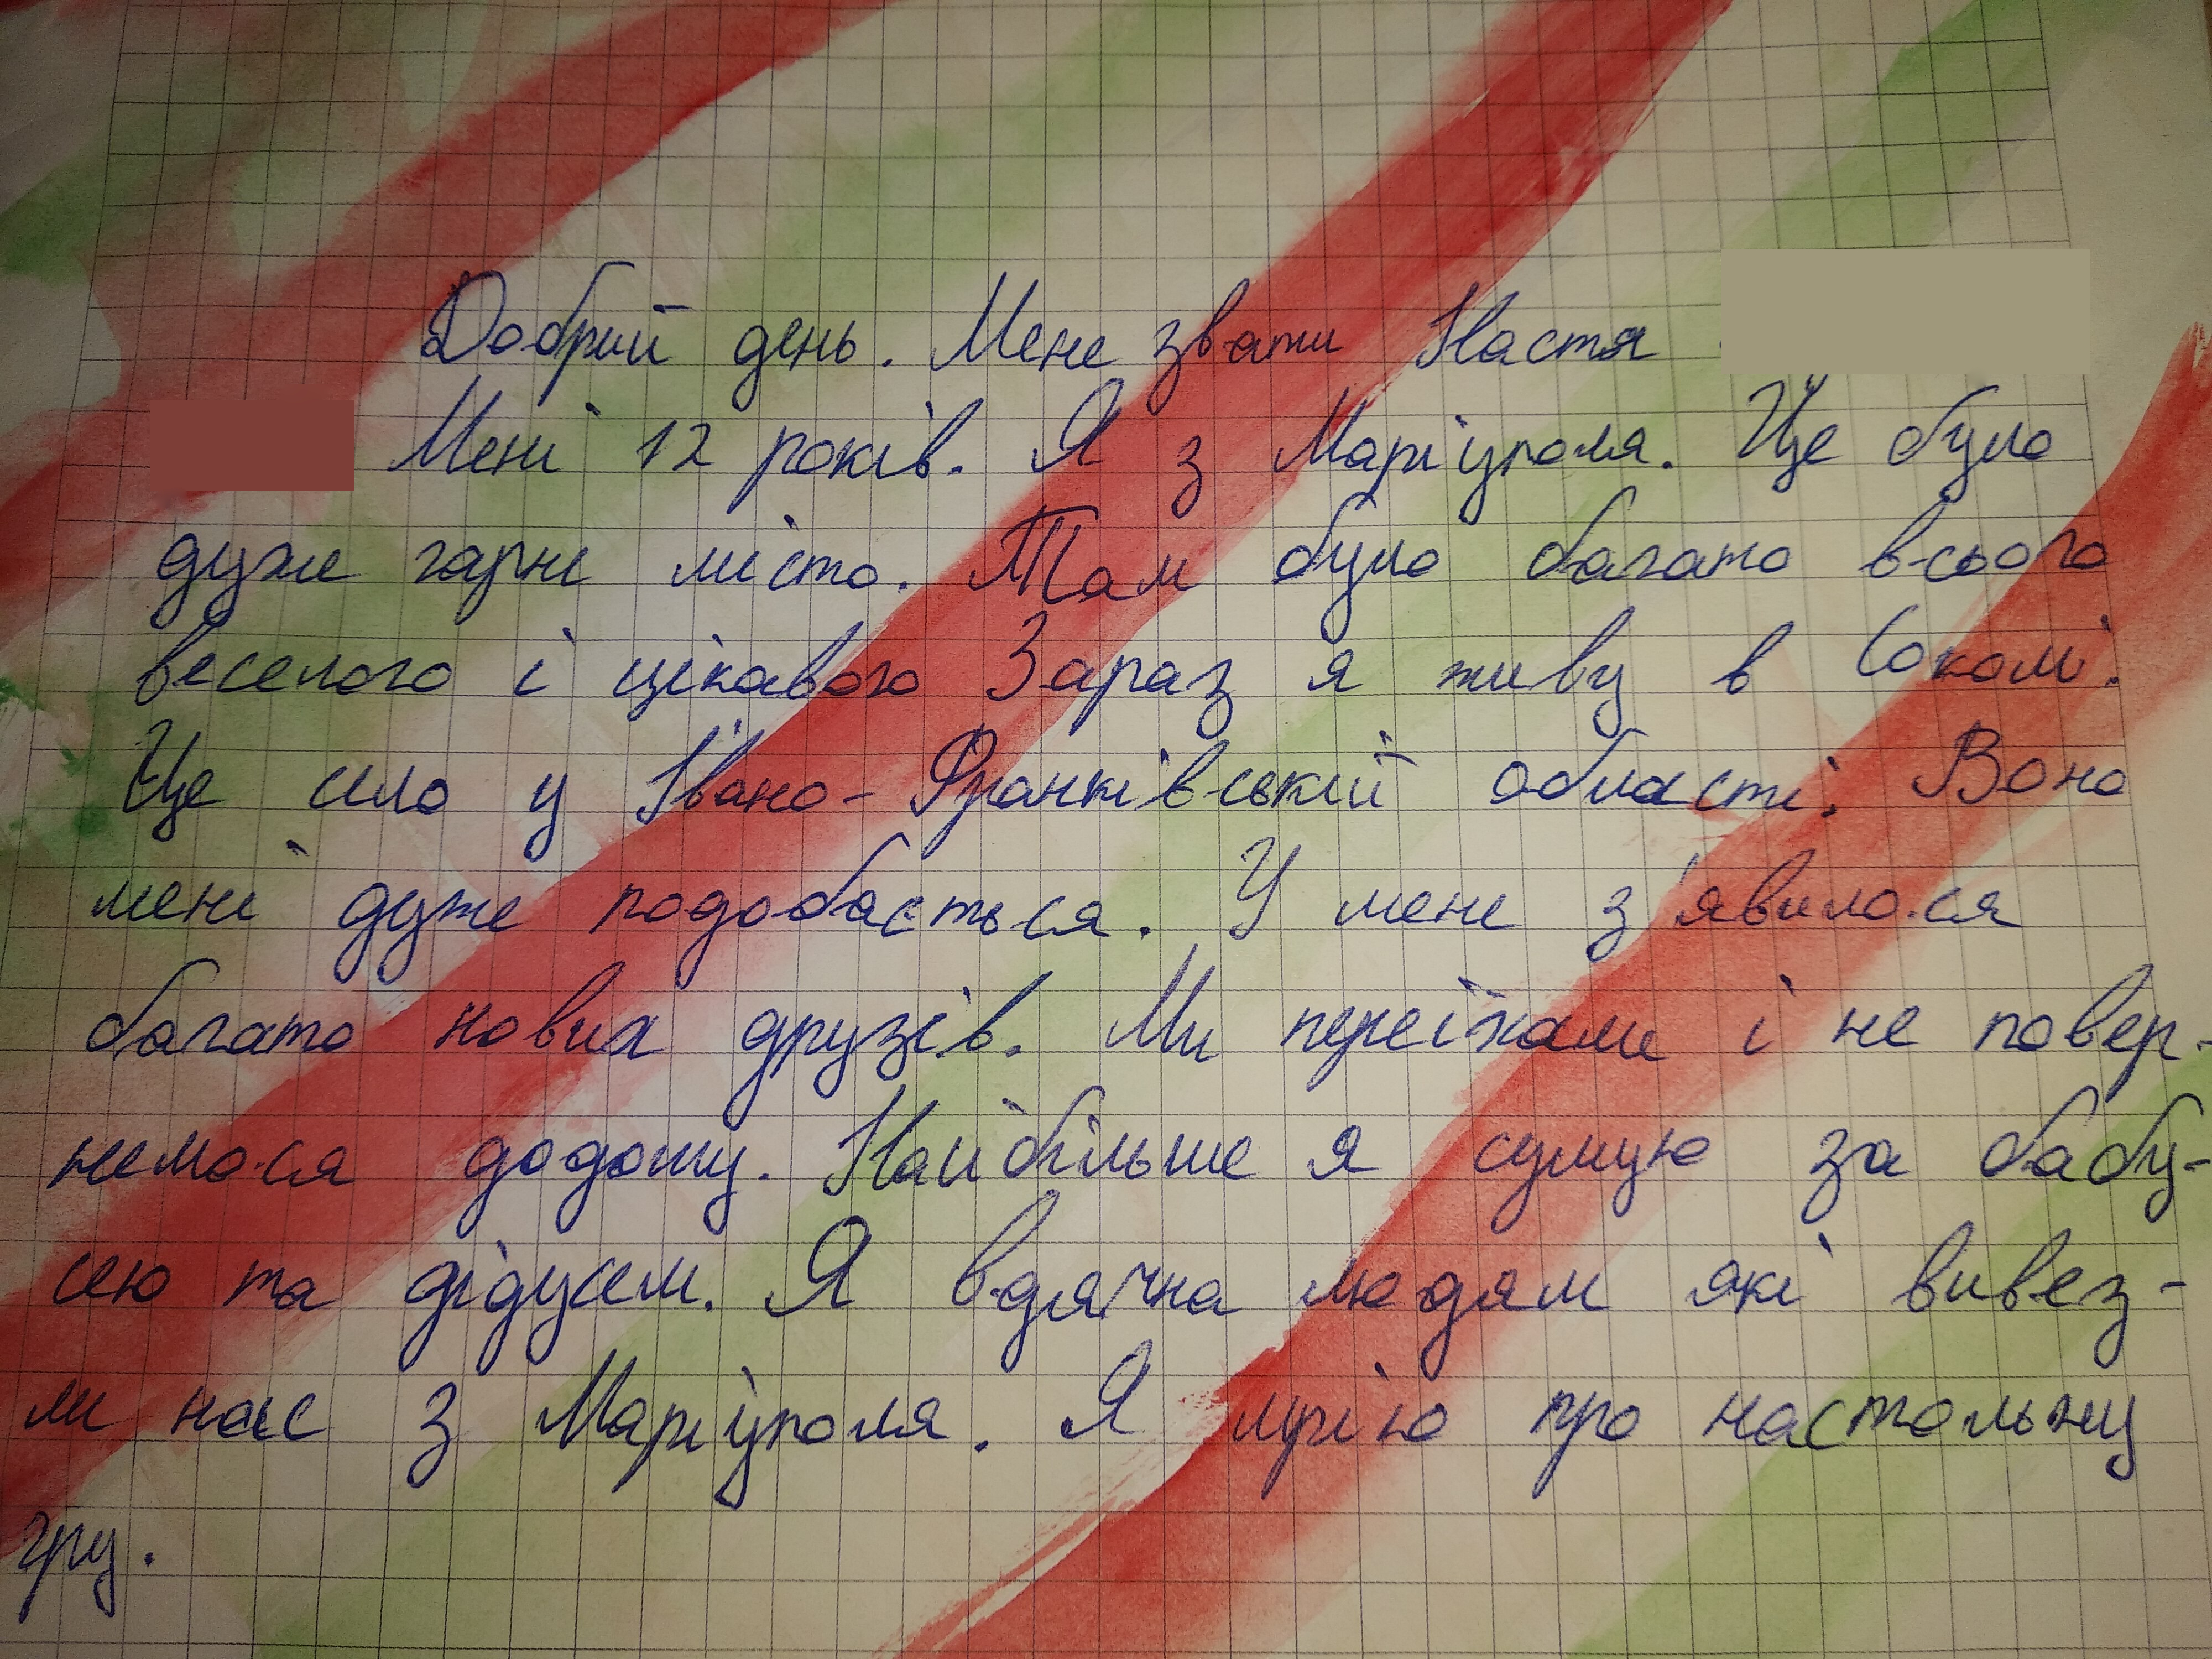 Добрий день. Мене звати Настя
Мені 12 років. Я з Маріуполя. Це було
дуже гарне місто. Там було багато всього
веселого і цікавого Зараз я живу в Соколі.
Це село у Івано-Франківській області. Воно
мені дуже подобається. У мене з'явилося
багато нових друзів. Ми переїхали і не повер-
немося додому. Найбільше я сумую за бабу-
сею та дідусем. Я вдячна людям які вивез-
ли нас з Маріуполя. Я мрію про настольну
гру.